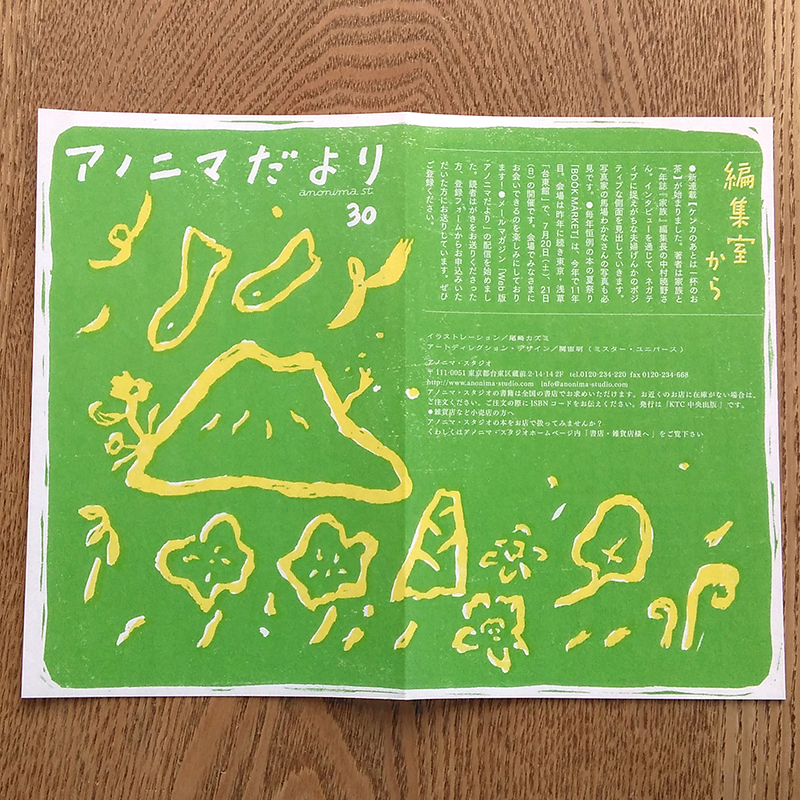 アノニマだより
anonima st.
30
編集室から
●新連載【ケンカのあとは一杯のお
茶】が始まりました。著者は家族と
一年誌『家族』編集長の中村暁野さ
ん。インタビューを通じて、ネガテ
ィブに捉えがちな夫婦げんかのポジ
ティブな側面を見出していきます。
写真家の馬場わかなさんの写真も必
見です。●毎年恒例の本の夏祭り
「BOOK MARKET」は、今年で11年
目。会場は昨年に続き東京・浅草
「台東館」で、7月20日(土)、21日
(日)の開催です。会場でみなさまに
お会いできるのを楽しみにしており
ます!●メールマガジン「Web版
アノニマだより」の配信を始めまし
た。読者はがきをお送りくださった
方、登録フォームからお申込みいた
だいた方にお送りしています。ぜひ
ご登録ください。
イラストレーション/尾崎カズミ
アートディレクション・デザイン/関宙明(ミスター・ユニバース)
アノニマ・スタジオ
〒111-0051 東京都台東区蔵前2-14-14 2F tel.0120-234-220 fax 0120-234-668
http://www.anonima-studio.com info@anonima-studio.com
アノニマ・スタジオの書籍は全国の書店でお求めいただけます。お近くのお店に在庫がない場合は、
ご注文ください。ご注文の際にISBNコードをお伝えください。発行は「KTC中央出版」です。
●雑貨店など小売店の方へ
アノニマ・スタジオの本をお店で扱ってみませんか?
くわしくはアノニマ・スタジオホームページ内「書店・雑貨店様へ」をご覧下さい